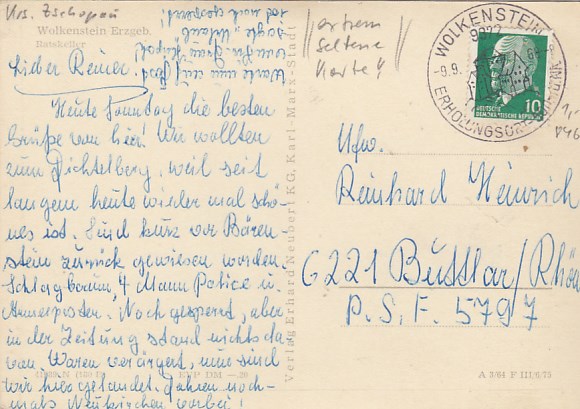 Krs. Zschopau
Wolkenstein Erzgeb.
Ratskeller
Lieber Reiner!
Heute Sonntag die besten
Grüße von hier! Wir wollten
zum Fichtelberg, weil seit
langem heute wieder mal schö-
nes ist. Sind kurz vor Bären-
stein zurück gewiesen worden
Schlagbaum, 4 Mann Police u.
Armeeposten. Noch gesperrt, aber
in der Zeitung stand nichts da
von. Waren verärgert, nun sind
wir hier gelandet. Fahren noch-
mals Neukirchen vorbei!
extrem
seltene
Karte!
WOLKENSTEIN
9372
-9.9.
ERHOLUNGSORT
DEUTSCHE
DEMOKRATISCHE REPUBLIK
10
1,-
Ufw.
Reinhard Heinrich
6221 Buttlar/Rhön
P.S.F. 5797
Verlag Erhard Neubert KG, Karl-Marx-Stadt
A 3/64 F III/6/75